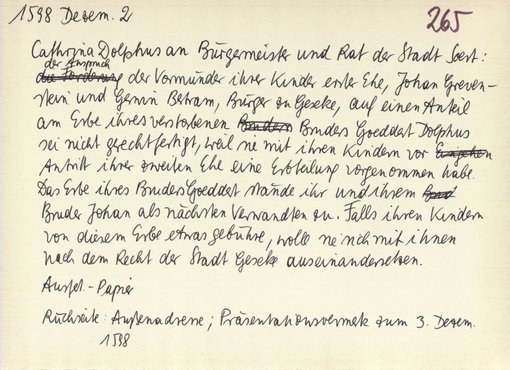 1598 Dezem. 2
265
Cathryna Dolphus an Bürgermeister und Rat der Stadt Soest:
der Anspruch
die Forderung der Vormünder ihrer Kinder erster Ehe, Johan Greven-
stein und Gerwin Betram, Bürger zu Geseke, auf einen Anteil
am Erbe ihres verstorbenen Bruders Goeddert Dolphus
sei nicht gerechtfertigt, weil sie mit ihren Kindern vor
Antritt ihrer zweiten Ehe eine Erbteilung vorgenommen habe.
Das Erbe ihres Bruders Goeddert stände ihr und ihrem
Bruder Johan als nächsten Verwandten zu. Falls ihren Kindern
von diesem Erbe etwas gebühre, wolle sie sich mit ihnen
nach dem Recht der Stadt Geseke auseinandersetzen.
Ausfert.-Papier
Rückseite: Außenadresse; Präsentationsvermerk zum 3. Dezem.
1598